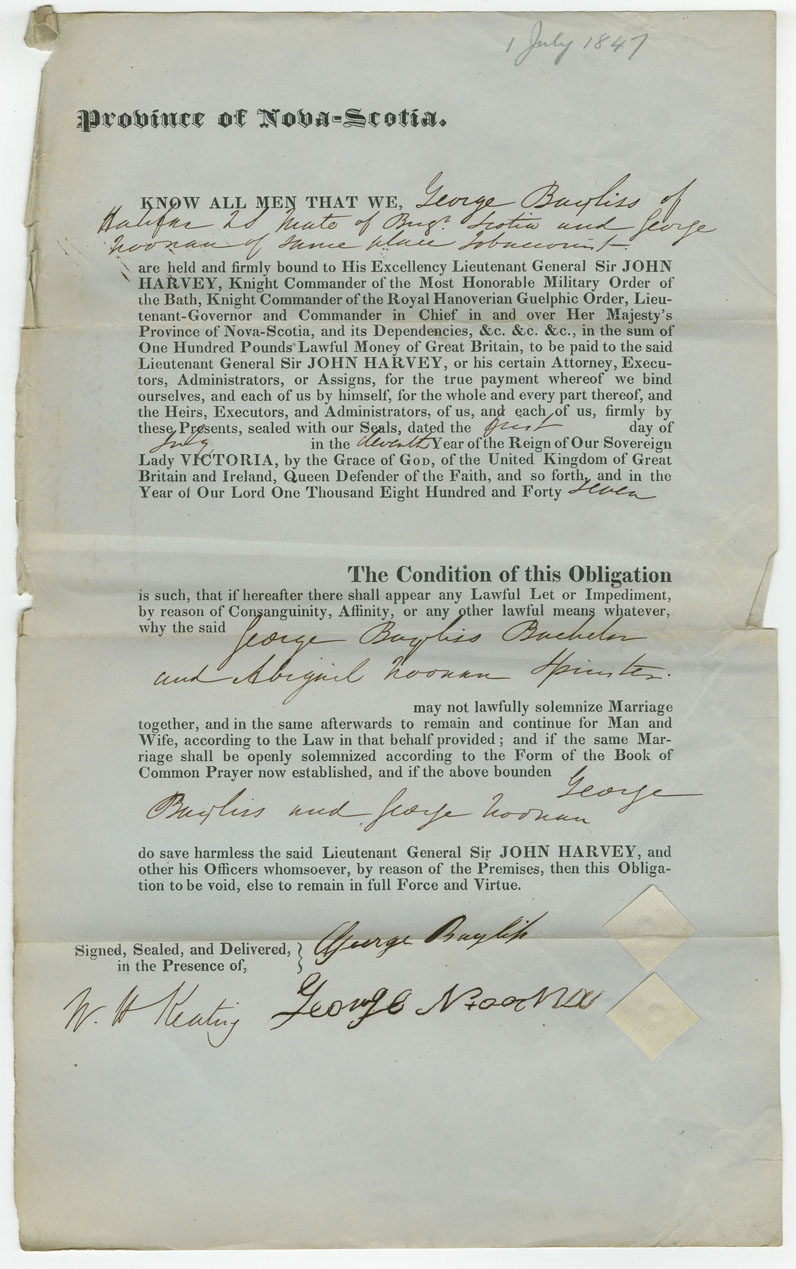 1 July 1847
Province of Nova-Scotia.
KNOW ALL MEN THAT WE, George Bayliss of
Halifax 2d Mate of Brigt Scotia and George
Noonan of same place Tobacconist
are held and firmly bound to His Excellency Lieutenant General Sir JOHN
HARVEY, Knight Commander of the Most Honorable Military Order of
the Bath, Knight Commander of the Royal Hanoverian Guelphic Order, Lieu-
tenant-Governor and Commander in Chief in and over Her Majesty's
Province of Nova-Scotia, and its Dependencies, &c. &c. &c., in the sum of
One Hundred Pounds Lawful Money of Great Britain, to be paid to the said
Lieutenant General Sir JOHN HARVEY, or his certain Attorney, Execu-
tors, Administrators, or Assigns, for the true payment whereof we bind
ourselves, and each of us by himself, for the whole and every part thereof, and
the Heirs, Executors, and Administrators, of us, and each of us, firmly by
these Presents, sealed with our Seals, dated the first day of
July in the eleventh Year of the Reign of Our Sovereign
Lady VICTORIA, by the Grace of GOD, of the United Kingdom of Great
Britain and Ireland, Queen Defender of the Faith, and so forth, and in the
Year of Our Lord One Thousand Eight Hundred and Forty seven
The Condition of this Obligation
is such, that if hereafter there shall appear any Lawful Let or Impediment,
by reason of Consanguinity, Affinity, or any other lawful means whatever,
why the said George Bayliss Bachelor
and Abigail Noonan Spinster.
may not lawfully solemnize Marriage
together, and in the same afterwards to remain and continue for Man and
Wife, according to the Law in that behalf provided; and if the same Mar-
riage shall be openly solemnized according to the Form of the Book of
Common Prayer now established, and if the above bounden George
Bayliss and George Noonan
do save harmless the said Lieutenant General Sir JOHN HARVEY, and
other his Officers whomsoever, by reason of the Premises, then this Obliga-
tion to be void, else to remain in full Force and Virtue.
Signed, Sealed, and Delivered, } George Bayliss
in the Presence of,
W. H Keating George Noonan